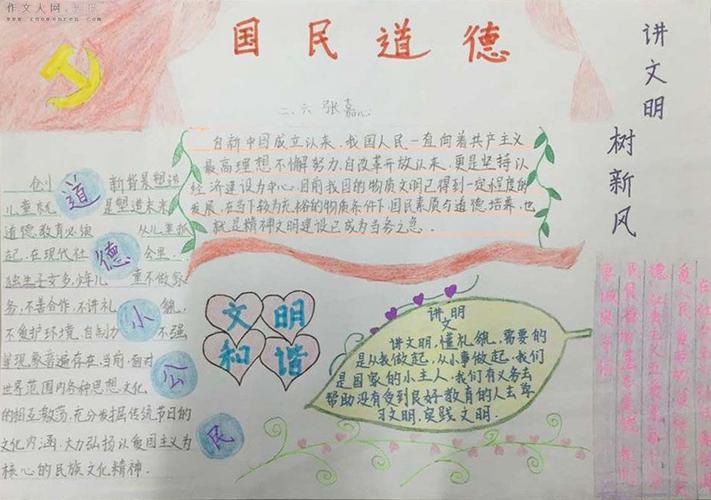 作文人网
www.zuowenren.com
国民道德
二、六 张嘉心
讲文明
树新风
自新中国成立以来，我国人民一直向着共产主义
最高理想不懈努力，自改革开放以来，更是坚持以
经济建设为中心，目前我国的物质文明已得到一定程度的
发展，在当下较为充裕的物质条件下，国民素质与道德培养，也
就是精神文明建设已成为当务之急．
道德小公民
创小 新背景塑造
儿童就是塑造未来
道德教育必须从儿童抓
起．在现代社会里．
独生子女多，
务，不善合作，不讲礼貌，
不爱护环境，自制力不强
等现象普遍存在．当前，面对
世界范围内各种思想文化
的相互激荡，充分发掘传统节日的
文化内涵，大力弘扬以爱国主义为
核心的民族文化精神．
文明
和谐
讲文明
讲文明，懂礼貌，需要的
是从我做起，从小事做起．我们
是国家的小主人，我们有义务去
帮助没有受到良好教育的人去学
习文明，实践文明．